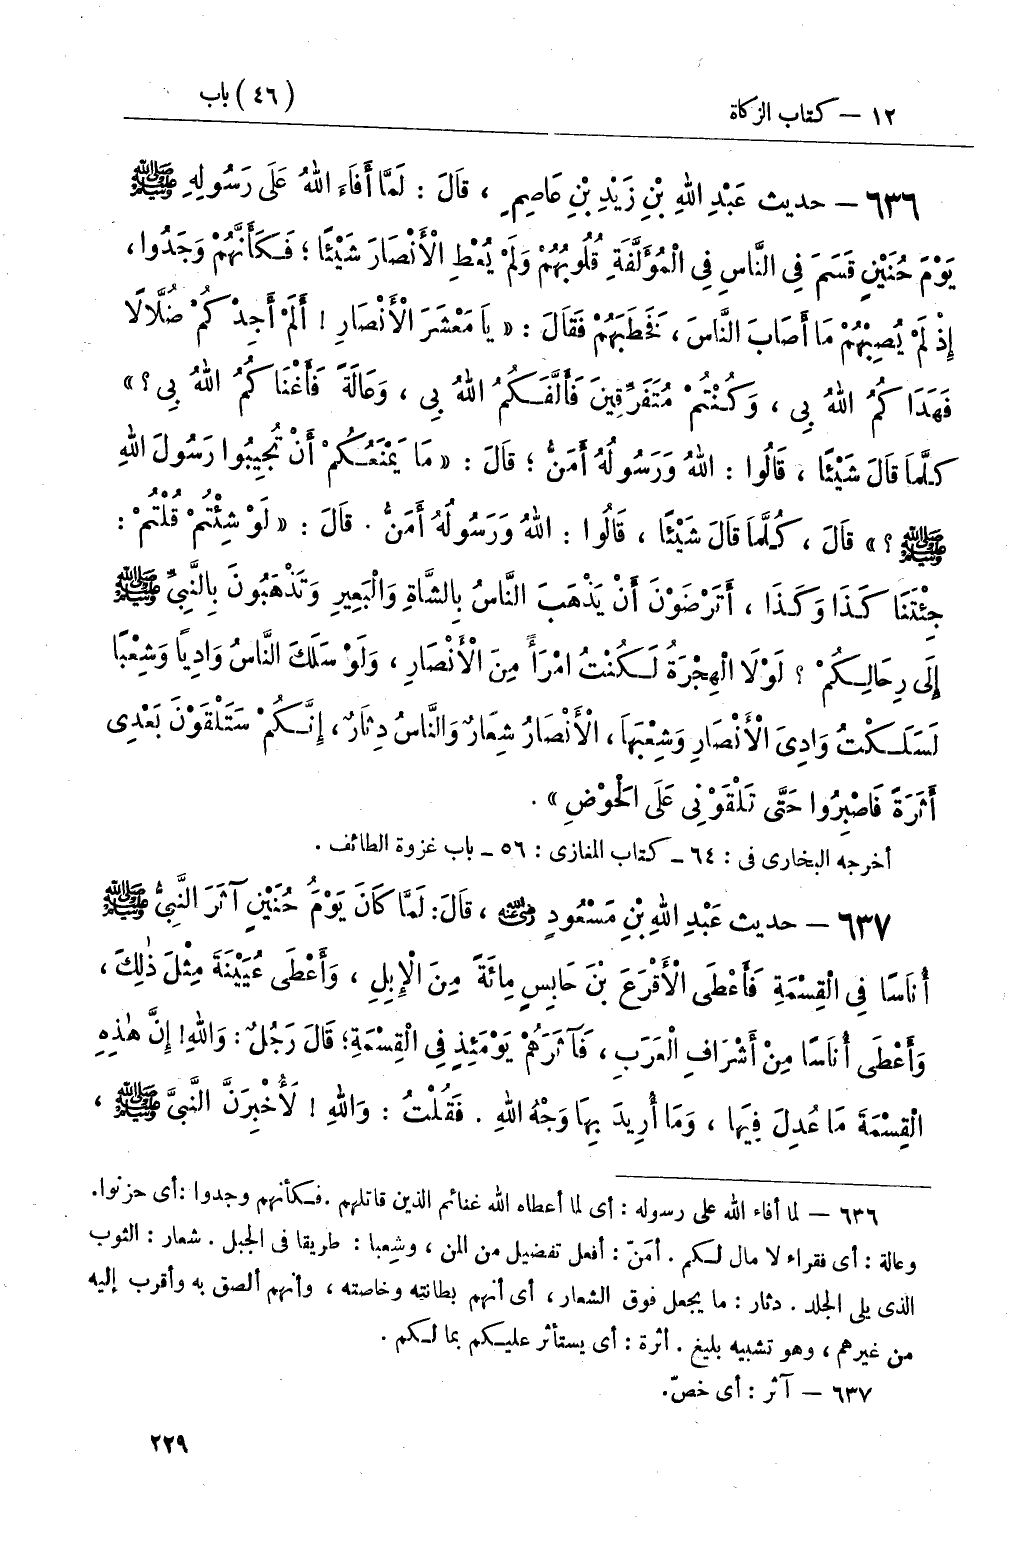 ١٢ – كتاب الزكاة (٤٦) باب
٦٣٦ – حديث عَبْدِ اللهِ بْنِ زَيْدِ بْنِ عَاصِمٍ ، قَالَ : لَمَّا أَفَاءَ اللهُ عَلَى رَسُولِهِ ﷺ
يَوْمَ حُنَيْنٍ قَسَمَ فِي النَّاسِ فِي الْمُؤَلَّفَةِ قُلُوبُهُمْ وَلَمْ يُعْطِ الْأَنْصَارَ شَيْئًا ؛ فَكَأَنَّهُمْ وَجَدُوا،
إِذْ لَمْ يُصِبْهُمْ مَا أَصَابَ النَّاسَ ، فَخَطَبَهُمْ فَقَالَ : « يَا مَعْشَرَ الْأَنْصَارِ ! أَلَمْ أَجِدْكُمْ ضُلَّالًا
فَهَدَاكُمُ اللهُ بِي ، وَكُنْتُمْ مُتَفَرِّقِينَ فَأَلَّفَكُمُ اللهُ بِي ، وَعَالَةً فَأَغْنَاكُمُ اللهُ بِي ؟ »
كلَّمَا قَالَ شَيْئًا ، قَالُوا : اللهُ وَرَسُولُهُ أَمَنُّ ؛ قَالَ : « مَا يَمْنَعُكُمْ أَنْ تُجِيبُوا رَسُولَ اللهِ
ﷺ ؟ » قَالَ ، كُلَّمَا قَالَ شَيْئًا ، قَالُوا : اللهُ وَرَسُولُهُ أَمَنُّ . قَالَ : « لَوْ شِئْتُمْ قُلْتُمْ :
جِئْتَنَا كَذَا وَكَذَا ، أَتَرْضَوْنَ أَنْ يَذْهَبَ النَّاسُ بِالشَّاةِ وَالْبَعِيرِ وَتَذْهَبُونَ بِالنَّبِيِّ ﷺ
إِلَى رِحَالِكُمْ ؟ لَوْلَا الْهِجْرَةُ لَكُنْتُ امْرَأً مِنَ الْأَنْصَارِ ، وَلَوْ سَلَكَ النَّاسُ وَادِيًا وَشِعْبًا
لَسَلَكْتُ وَادِيَ الْأَنْصَارِ وَشِعْبَهَا، الْأَنْصَارُ شِعَارٌ وَالنَّاسُ دِثَارٌ، إِنَّكُمْ سَتَلْقَوْنَ بَعْدِى
أَثَرَةً فَاصْبِرُوا حَتَّى تَلْقَوْنِي عَلَى الْحَوْضِ » .
أخرجه البخارى فى : ٦٤ ـ كتاب المغازى : ٥٦ ـ باب غزوة الطائف .
٦٣٧ – حديث عَبْدِ اللهِ بْنِ مَسْعُودٍ رضي الله عنه ، قَالَ: لَمَّا كَانَ يَوْمُ حُنَيْنٍ آثَرَ النَّبِيُّ ﷺ
أُنَاسًا فِي الْقِسْمَةِ فَأَعْطَى الْأَقْرَعَ بْنَ حَابِسٍ مِائَةً مِنَ الْإِبِلِ ، وَأَعْطَى عُيَيْنَةَ مِثْلَ ذٰلِكَ ،
وَأَعْطَى أُنَاسًا مِنْ أَشْرَافِ الْعَرَبِ ، فَآثَرَهُمْ يَوْمَئِذٍ فِي الْقِسْمَةِ؛ قَالَ رَجُلٌ : وَاللهِ! إِنَّ هٰذِهِ
الْقِسْمَةَ مَا عُدِلَ فِيهَا ، وَمَا أُرِيدَ بِهَا وَجْهُ اللهِ . فَقُلْتُ : وَاللهِ ! لَأُخْبِرَنَّ النَّبِيَّ ﷺ ،
٦٣٦ – لما أفاء الله على رسوله : أى لما أعطاه الله غنائم الذين قاتلهم . فكأنهم وجدوا :أى حزنوا.
وعالة : أى فقراء لا مال لكم . أمَنّ : أفعل تفضيل من المن ، وشِعبا : طريقا فى الجبل . شعار : الثوب
الذى يلى الجلد . دثار : ما يجعل فوق الشعار ، أى أنهم بطانته وخاصته ، وأنهم ألصق به وأقرب إليه
من غيرهم ، وهو تشبيه بليغ . أثرة : أى يستأثر عليكم بما لكم .
٦٣٧ – آثر : أى خصّ.
٢٢٩